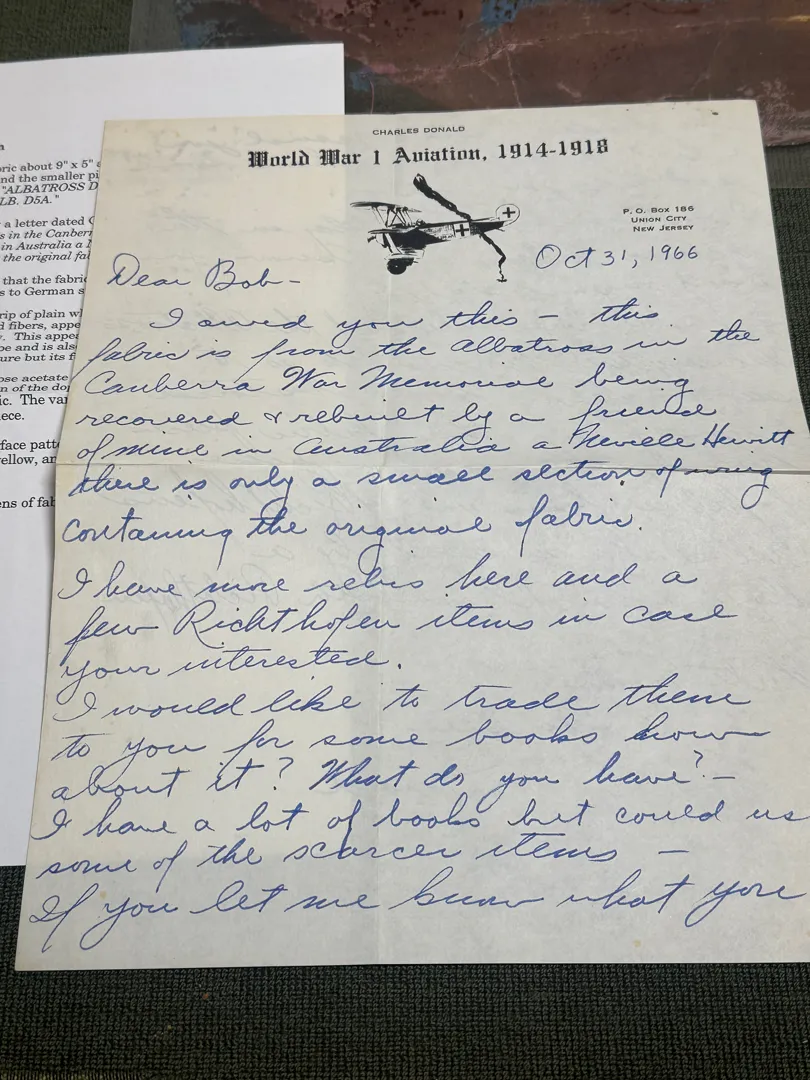 CHARLES DONALD
World War 1 Aviation, 1914-1918
P. O. BOX 186
UNION CITY
NEW JERSEY
Oct 31, 1966
Dear Bob-
I owed you this - this
fabric is from the albatross in the
Canberra War Memorial being
recovered & rebuilt by a friend
of mine in Australia a Neville Hewitt
there is only a small section of wing
containing the original fabric.
I have more relics here and a
few Richthofen items in case
your interested.
I would like to trade them
to you for some books how
about it? What do you have? -
I have a lot of books but could us
some of the scarcer items -
If you let me know what you
ric about 9" x 5"
nd the smaller pi
"ALBATROSS D
LB. D5A."
a letter dated
s in the Canber
in Australia a
the original fa
that the fabri
s to German s
rip of plain w
d fibers, appe
. This appea
pe and is als
ure but its f
ose acetate
n of the do
ic. The va
iece.
face patt
ellow, an
ens of fab